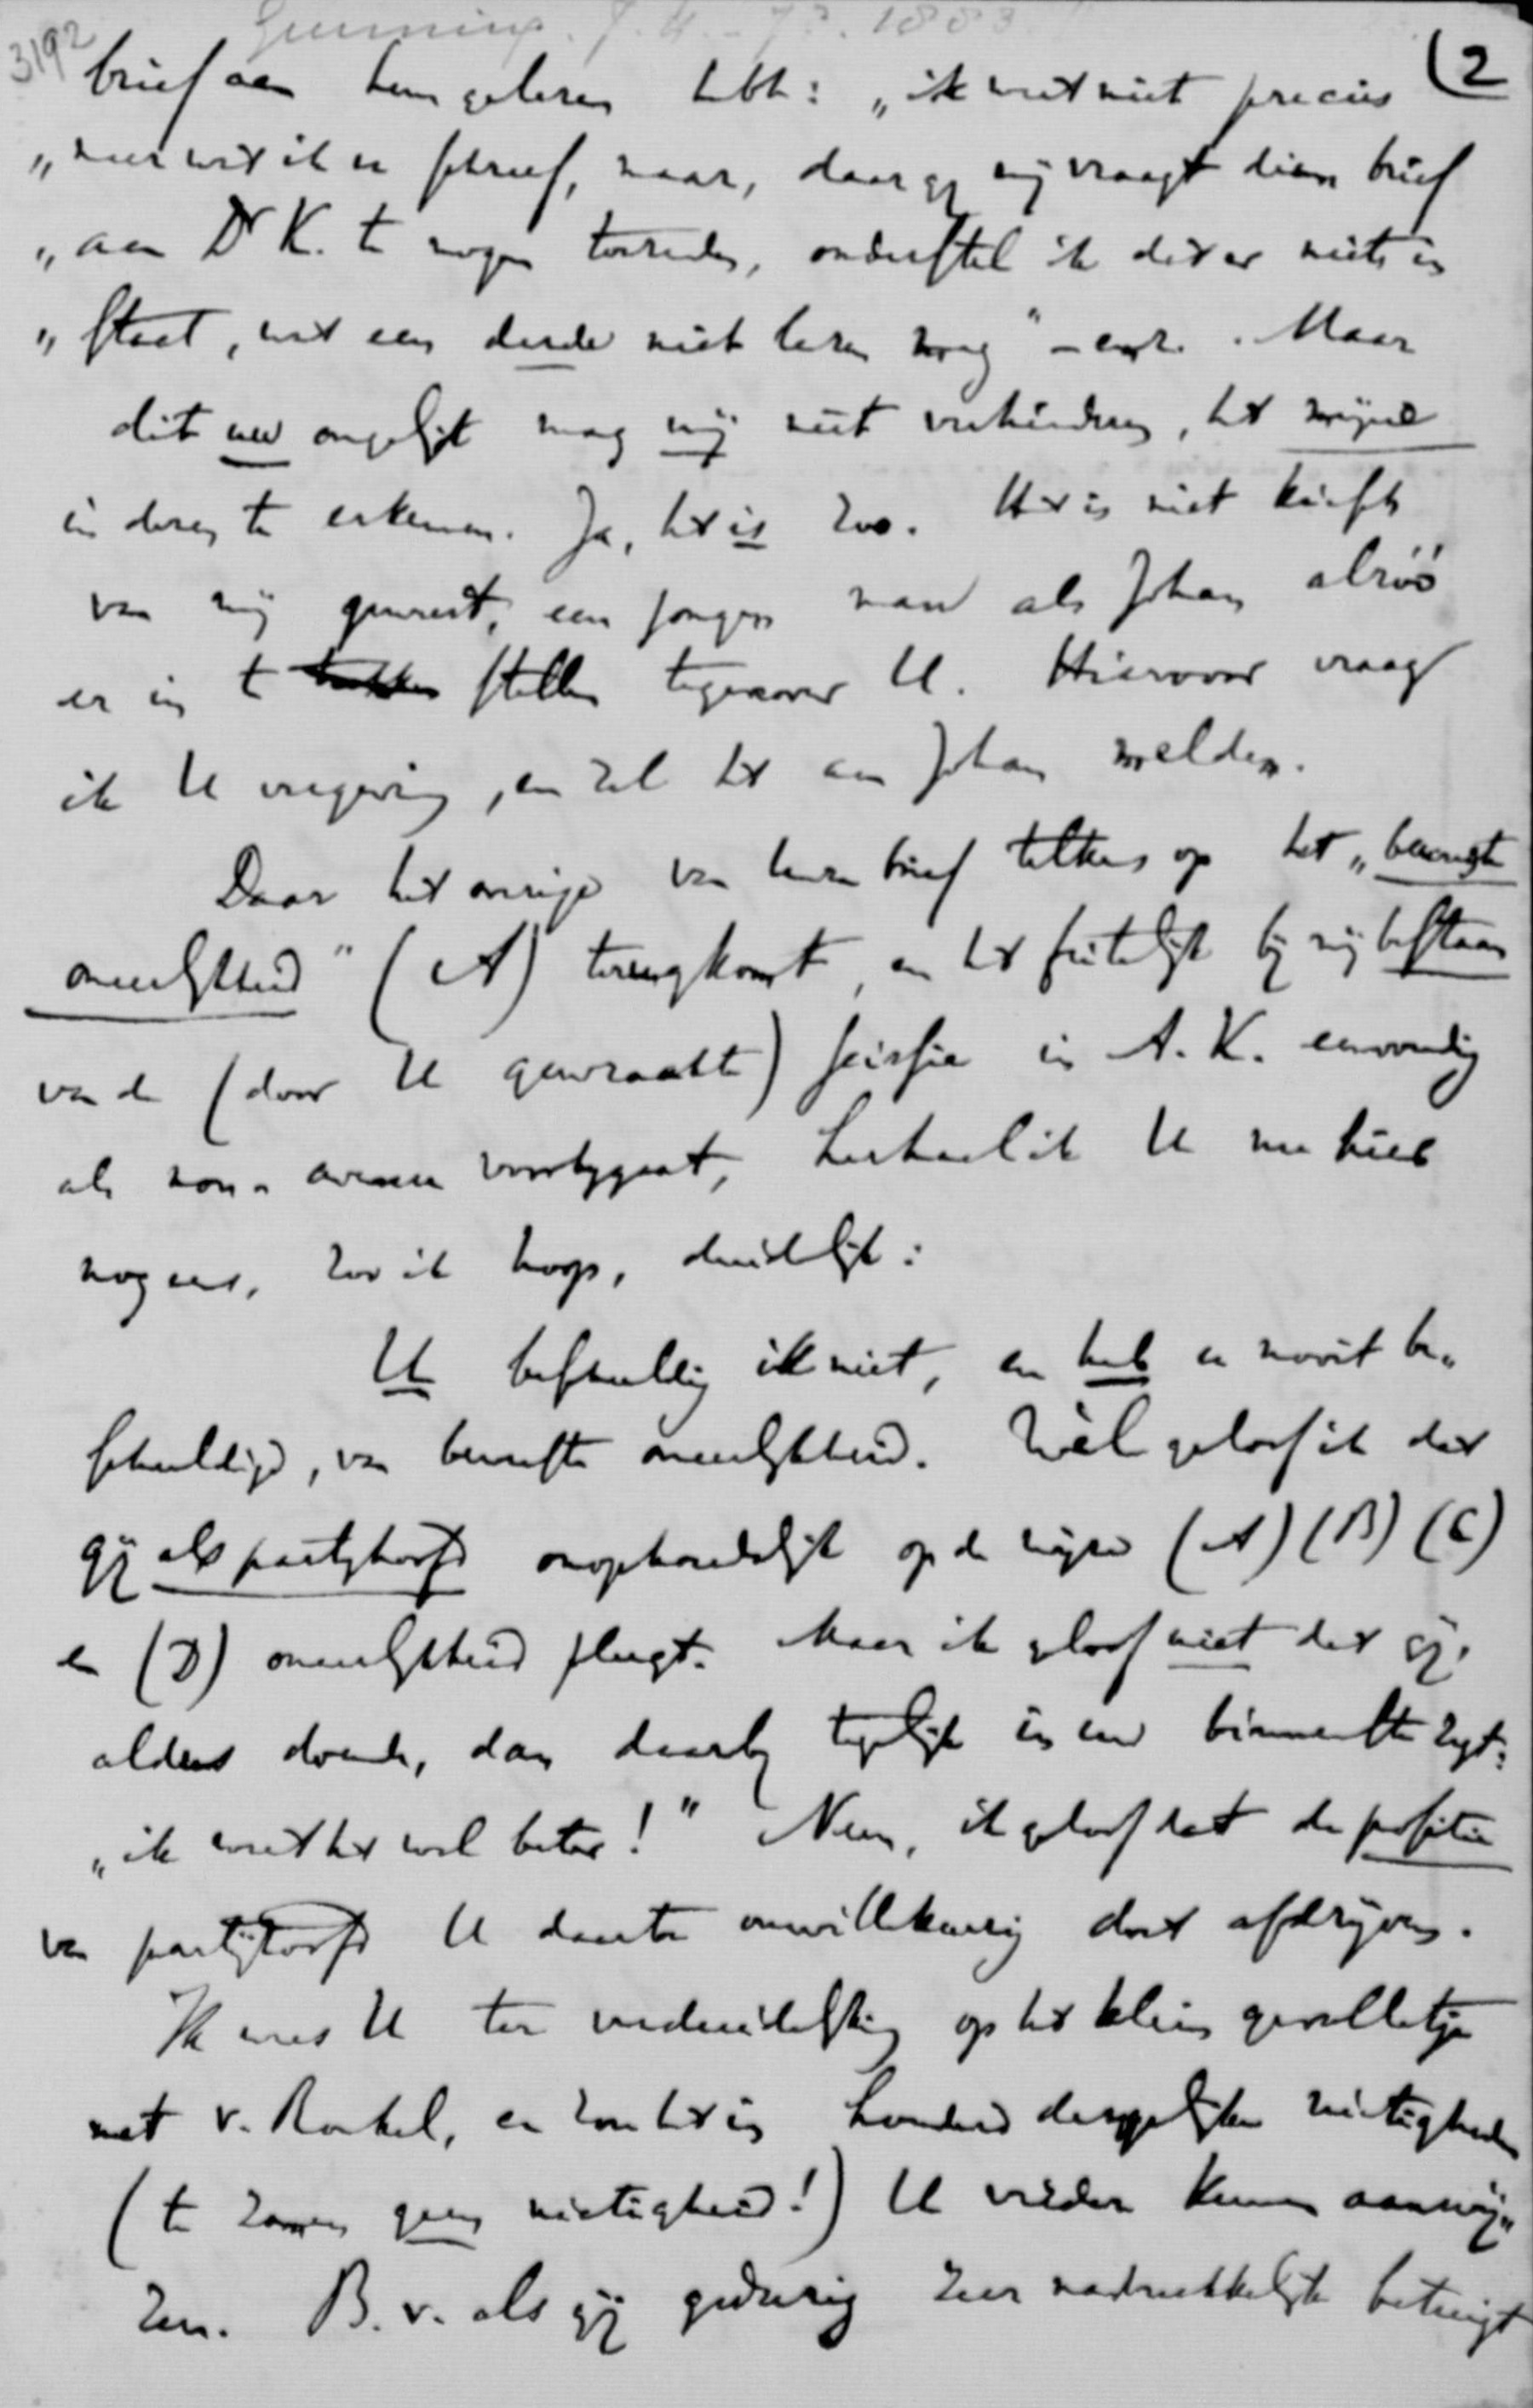 3192 Gunning. J. H. - Jr. 1883
(2
brief aan hem gelezen hebt: „ik weet niet precies
„meer wat ik er schreef, maar, daar gij mij vraagt dien brief
„aan Dr K. te mogen toezenden, onderstel ik dat er niets in
„staat, wat een derde niet lezen mag" – enz. Maar
dit uw ongelijk mag mij niet verhinderen, het mijne
in dezen te erkennen. Ja, het is zoo. Het is niet kiesch
van mij geweest, een jongen man als Johan alzóó
er in te stellen tegenover U. Hiervoor vraag
ik U vergeving, en zal het aan Johan melden.
Daar het overige van uwen brief telkens op het „bewuste
oneerlijkheid" (A) terugkomt, en het feitelijk bij mij bestaan
van de (door U gewraakte) scissie in A. K. eenvoudig
als non-avenu voorbijgaat, herhaal ik U nu hier
nog eens, zoo ik hoop, duidelijk:
U beschuldig ik niet, en heb er nooit be„
schuldigd, van bewuste oneerlijkheid. Wèl geloof ik dat
gij als partijhoofd onophoudelijk op de wijze (A) (B) (C)
en (D) oneerlijkheid pleegt. Maar ik geloof niet dat gij,
aldus doende, dan daarbij tegelijk in uw binnenste zegt:
„ik weet het wel beter!" Neen, ik geloof dat de positie
van partijhoofd U daartoe onwillekeurig doet afdrijven.
Ik wees U ter verduidelijking op het klein gevalletje
met v. Ronkel, en zou het in honderd dergelijke nietigheden
(te zamen geen nietigheid!) U verder kunnen aanwij„
zen. B. v. als gij gedurig zeer nadrukkelijk betuigt